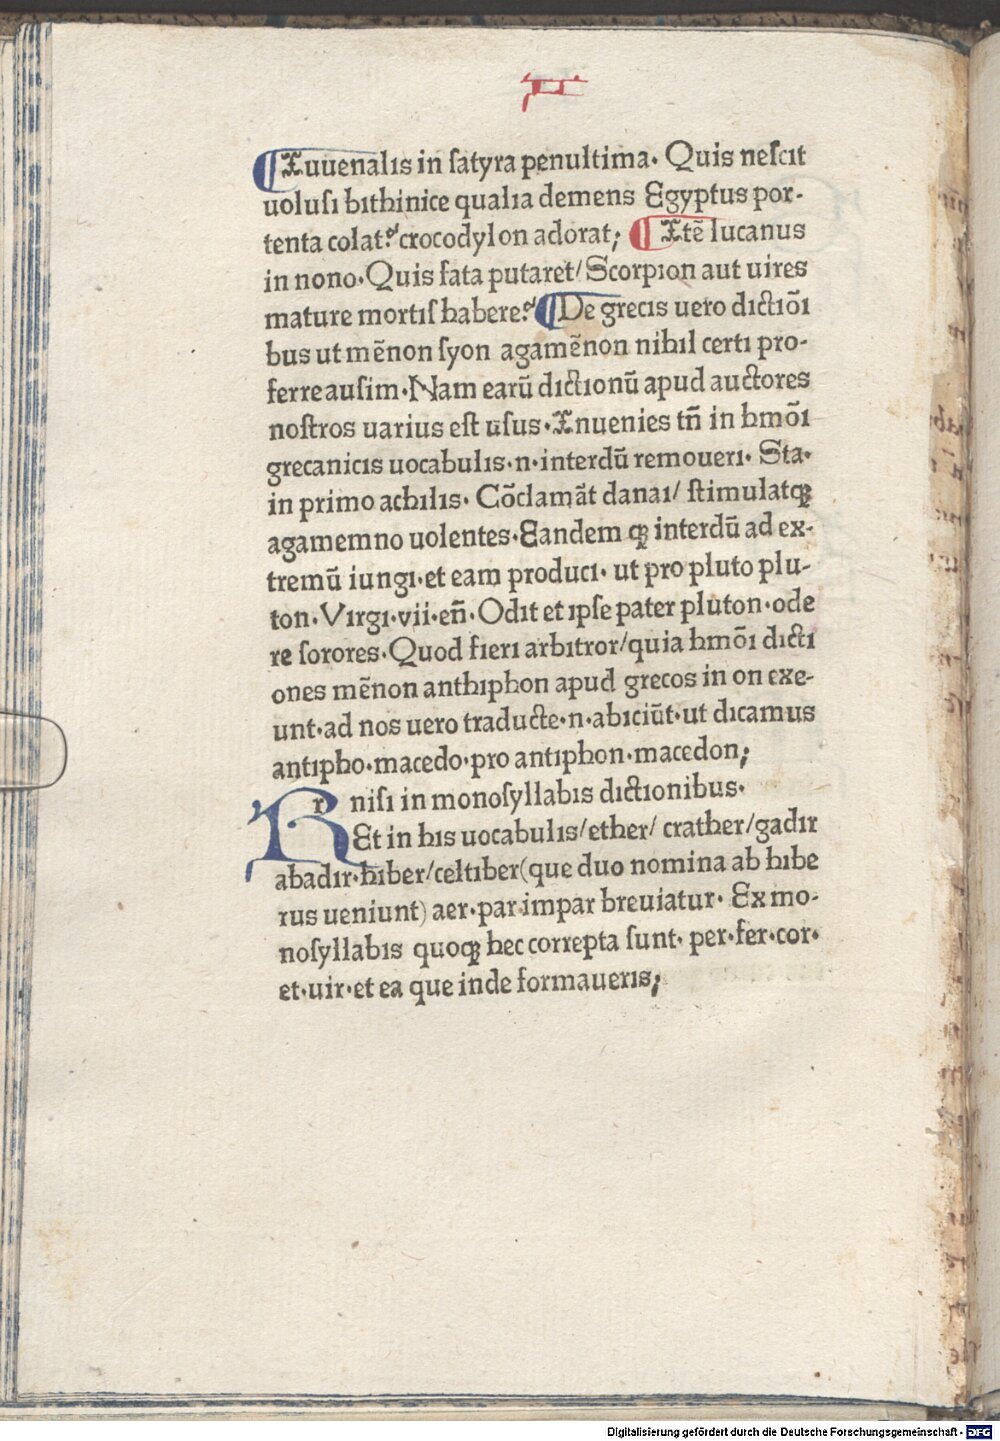 ¶Iuuenalis in ſatyra penultima. Quis neſcit
uoluſi bithinice qualia demens Egyptus por-
tenta colat? crocodylon adorat; ¶Itē lucanus
in nono. Quis fata putaret/ Scorpion aut uires
mature mortiſ habere? ¶De grecis uero dictiōi
bus ut mēnon ſyon agamēnon nihil certi pro-
ferre auſim. Nam earū dictionū apud auctores
noſtros uarius eſt uſus. Inuenies tñ in hmōi
grecanicis uocabulis .n. interdū remoueri. Sta.
in primo achilis. Cōclamāt danai/ ſtimulatqꝫ
agamemno uolentes. Eandem qꝫ interdū ad ex-
tremū iungi. et eam produci. ut pro pluto plu-
ton. Virgi. vii. eñ. Odit et ipſe pater pluton. ode
re ſorores. Quod fieri arbitror/ quia hmōi dicti
ones mēnon anthiphon apud grecos in on exe-
unt. ad nos uero traducte .n. abiciūt. ut dicamus
antipho. macedo. pro antiphon. macedon;
R niſi in monoſyllabis dictionibus.
Et in his uocabulis/ ether/ crather/ gadir
abadir. hiber/ celtiber (que duo nomina ab hibe
rus ueniunt) aer. par. impar breuiatur. Ex mo-
noſyllabis quoqꝫ hec correpta ſunt. per. fer. cor.
et. uir. et ea que inde formaueris;
Digitalisierung gefördert durch die Deutsche Forschungsgemeinschaft - DFG